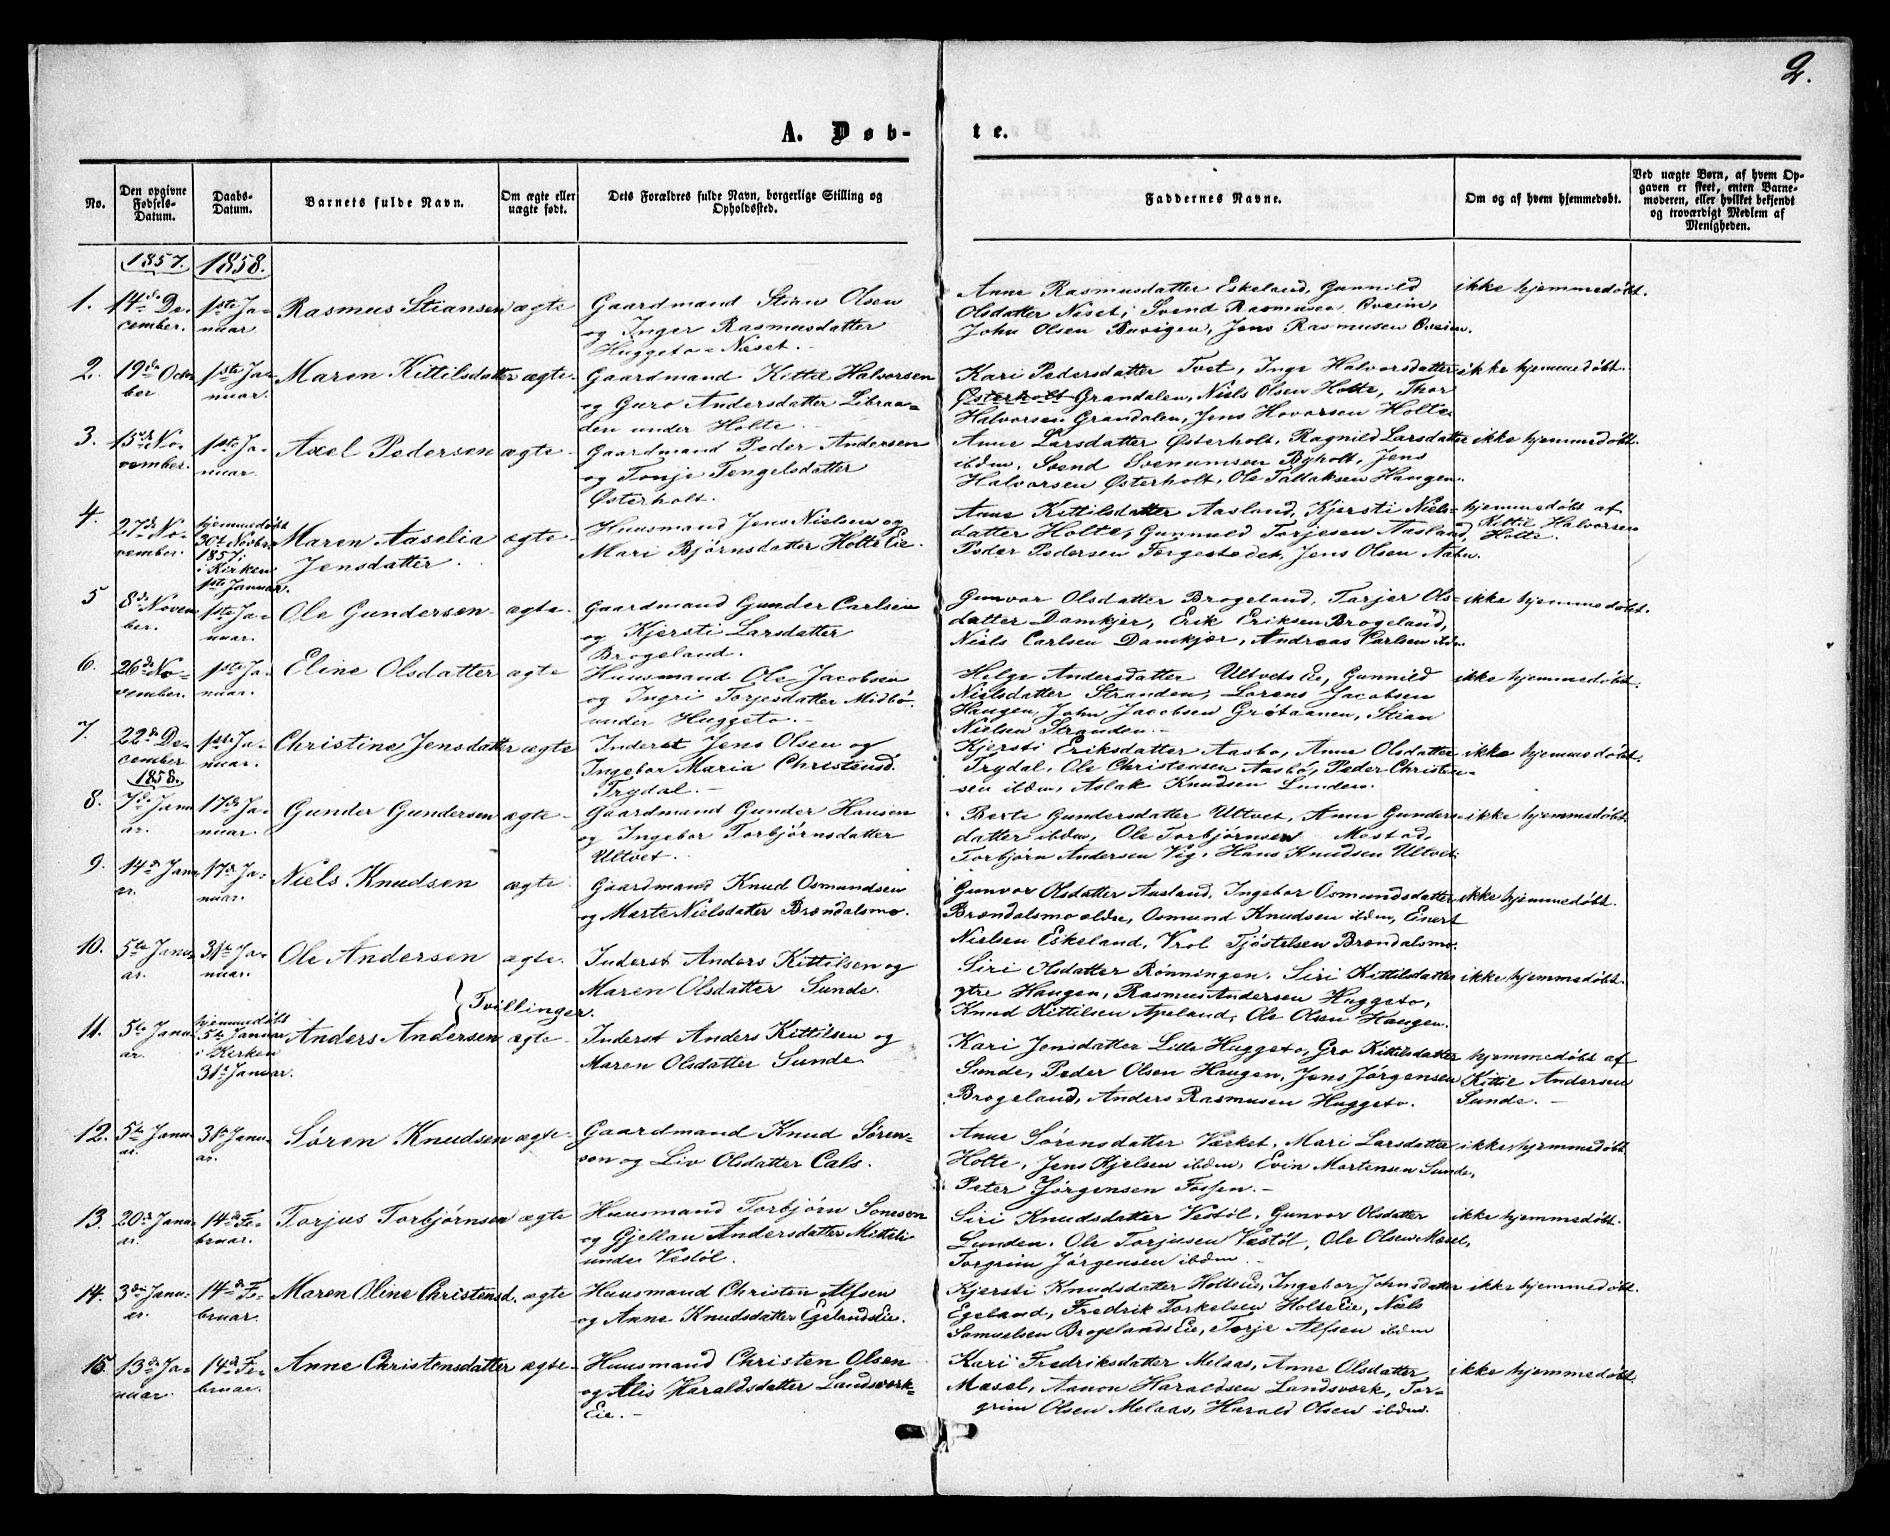 2.
A. Døb-te.
No.
Den opgivne Fødsels-Datum.
Daabs-Datum.
Barnets fulde Navn.
Om ægte eller uægte født.
Dets Forældres fulde Navn, borgerlige Stilling og Opholdssted.
Faddernes Navne.
Om og af hvem hjemmedøbt.
Ved uægte Børn, af hvem Opgaven er skeet, enten Barnemoderen, eller hvilket bekjendt og troværdigt Medlem af Menigheden.
1857. 1858.
1. 14de December. 1ste Januar Rasmus Stiansen ægte
Gaardmand Stian Olsen
og Inger Rasmusdatter
Huggeto-Næset.
Anne Rasmusdatter Eskeland, Gunnild
Olsdatter Næset, Svend Rasmusen Oveim,
John Olsen Buvigen, Jens Rasmusen Oveim.
ikke hjemmedøbt.
2. 19de October 1ste Januar. Maren Kittilsdatter ægte
Gaardmand Kittil Halvorsen
og Guro Andersdatter Libraaden
under Holte.
Kari Pedersdatter Tvet, Inge Halvorsdatter
Østerholt Grandalen, Niels Olsen Holte, Thor
Halvorsen Grandalen, Jens Hovorsen Holte.
ikke hjemmedøbt.
3. 15de November. 1ste Januar Axel Pedersen ægte
Gaardmand Peder Andersen
og Tonje Tengelsdatter
Østerholt.
Anne Larsdatter Østerholt, Ragnild Larsdatter
ibdm, Svend Svenumsen Byholt, Jens
Halvorsen Østerholt, Ole Tallaksen Haugen.
ikke hjemmedøbt.
4. 27de November. hjemmedøbt 30te Novbr. 1857, i Kirken 1ste Januar. Maren Aaselia Jensdatter. ægte
Huusmand Jens Nielsen og
Mari Bjørnsdatter Holte Eie.
Anne Kittilsdatter Aasland, Kjersti Nielsdatter
Holte, Gunnuld Torjesen Aasland,
Peder Pedersen Torgestedet, Jens Olsen
hjemmedøbt af
Kittil Halvorsen
Holte.
5 8de November. 1ste Januar. Ole Gundersen ægte
Gaardmand Gunder Carlsen
og Kjersti Larsdatter
Brogeland.
Gunvor Olsdatter Brogeland, Torjer Olsdatter
Damkjer, Erik Eriksen Brogeland,
Niels Carlsen Damkjær, Andreas Carlsen ibdm
ikke hjemmedøbt.
6. 26de November. 1ste Januar. Eline Olsdatter ægte
Huusmand Ole Jacobsen
og Ingri Torjesdatter Midbö.
under Huggeto.
Helge Andersdatter Ultvets Eie, Gunnild
Nielsdatter Stranden, Lorens Jacobsen
Haugen, John Jacobsen Grötaanen, Stian
Nielsen Stranden.
ikke hjemmedøbt.
7. 22de December 1ste Januar. Christine Jensdatter ægte
Inderst Jens Olsen og
Ingebor Maria Christensd.
Trydal.
Kjersti Eriksdatter Aasbo, Anne Olsdatter
Trydal, Ole Christensen Aasbö, Peder Christensen
ibdm, Aslak Knudsen Lunden.
ikke hjemmedøbt.
1858.
8. 7de Januar. 17de Januar. Gunder Gundersen ægte
Gaardmand Gunder Hansen
og Ingebor Torbjørnsdatter
Ultvet.
Berte Gundersdatter Ultvet, Anne Gundersdatter
ibdm, Ole Torbjørnsen Mostad,
Torbjørn Andersen Vig, Hans Knudsen Ultvet.
ikke hjemmedøbt.
9. 14de Januar. 17de Januar. Niels Knudsen ægte
Gaardmand Knud Osmundsen
og Marte Nielsdatter Brændalsmo.
Gunvor Olsdatter Aasland, Ingebor Osmundsdatter
Brændalsmo ældre, Osmund Knudsen ibdm, Enert
Nielsen Eskeland, Vrol Tjöstelsen Brændalsmo.
ikke hjemmedøbt.
10. 5te Januar. 31te Januar. Ole Andersen ægte
Inderst Anders Kittilsen og
Maren Olsdatter Sunde.
Siri Olsdatter Rönningen, Siri Kittilsdatter
ytre Haugen, Rasmus Andersen Huggeto,
Knud Kittilsen Apeland, Ole Olsen Haugen.
ikke hjemmedøbt.
Tvillinger.
11. 5te Januar. hjemmedøbt 5te Januar i Kirken 31te Januar. Anders Andersen ægte
Inderst Anders Kittilsen og
Maren Olsdatter Sunde
Kari Jensdatter Lille Huggeto, Gro Kittilsdatter
Sunde, Peder Olsen Haugen, Jens Jørgensen
Brogeland, Anders Rasmusen Huggeto.
hjemmedøbt af
Kittil Andersen
Sunde.
12. 5te Januar. 31te Januar. Søren Knudsen ægte
Gaardmand Knud Sørensen
og Liv Olsdatter Cals.
Anne Sørensdatter Værket, Mari Larsdatter
Holte, Jens Kjelsen ibdm, Evin Mortensen Sunde,
Peter Jørgensen Fossen.
ikke hjemmedøbt.
13. 20de Januar. 14de Februar. Torjus Torbjørnsen ægte
Huusmand Torbjörn Sonesen
og Gjellau Andersdatter Mitteli
under Vestöl.
Siri Knudsdatter Vestöl, Gunvor Olsdatter
Lunden, Ole Torjusen Vestöl, Ole Olsen Mæsel,
Torgrim Jørgensen ibdm.
ikke hjemmedøbt.
14. 3die Januar. 14de Februar. Maren Oline Christensd. ægte
Huusmand Christen Alfsen
og Anne Knudsdatter Egelands Eie.
Kjersti Knudsdatter Holte Eie, Ingebor Johnsdatter
Egeland, Fredrik Torkelsen Holte Eie, Niels
Samuelsen Brogelands Eie, Torje Alfsen ibdm
ikke hjemmedøbt.
15 13de Januar. 14de Februar. Anne Christensdatter ægte
Huusmand Christen Olsen
og Alis Haraldsdatter Landsverk-
Eie.
Kari Fredriksdatter Melaas, Anne Olsdatter
Mæsel, Aanon Haraldsen Landsverk, Torgrim
Olsen Melaas, Harald Olsen ibdm.
ikke hjemmedøbt.